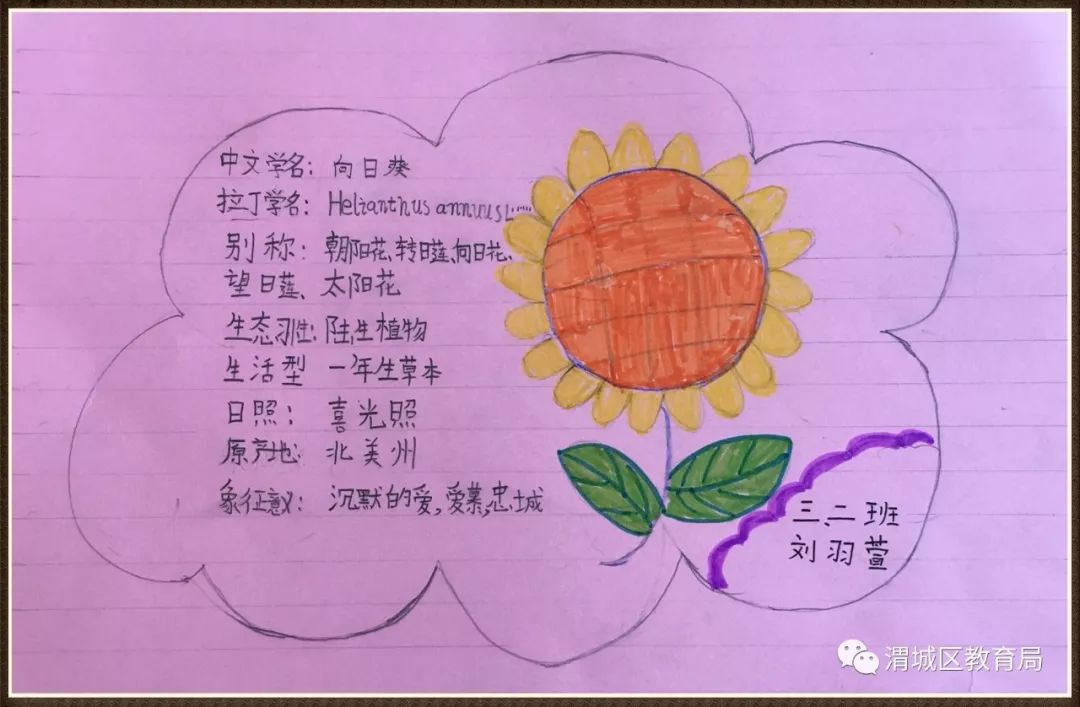 中文学名：向日葵
拉丁学名：Helianthus annuus L.
别称：朝阳花、转日莲、向日花、
望日莲、太阳花
生态习性：陆生植物
生活型 一年生草本
日照：喜光照
原产地：北美州
象征意义：沉默的爱，爱慕，忠城
三、二班
刘羽萱
渭城区教育局